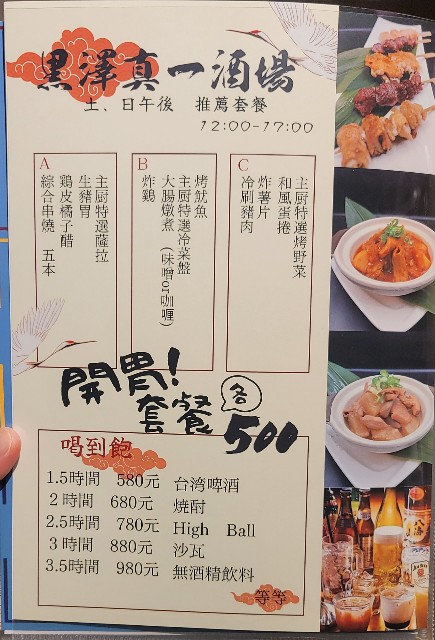 黒澤真一酒場
土、日午後 推薦套餐
12:00-17:00
A
主厨特選薩拉
生豬胃
鶏皮橘子醋
綜合串燒 五本
B
烤魷魚
主厨特選冷菜盤
大腸燉煮（味噌or咖喱）
炸鶏
C
主厨特選烤野菜
和風蛋捲
炸薯片
冷刷豬肉
開胃！
套餐 各500
喝到飽
1.5時間 580元 台湾啤酒
2時間 680元 焼酎
2.5時間 780元 High Ball
3時間 880元 沙瓦
3.5時間 980元 無酒精飲料
等等